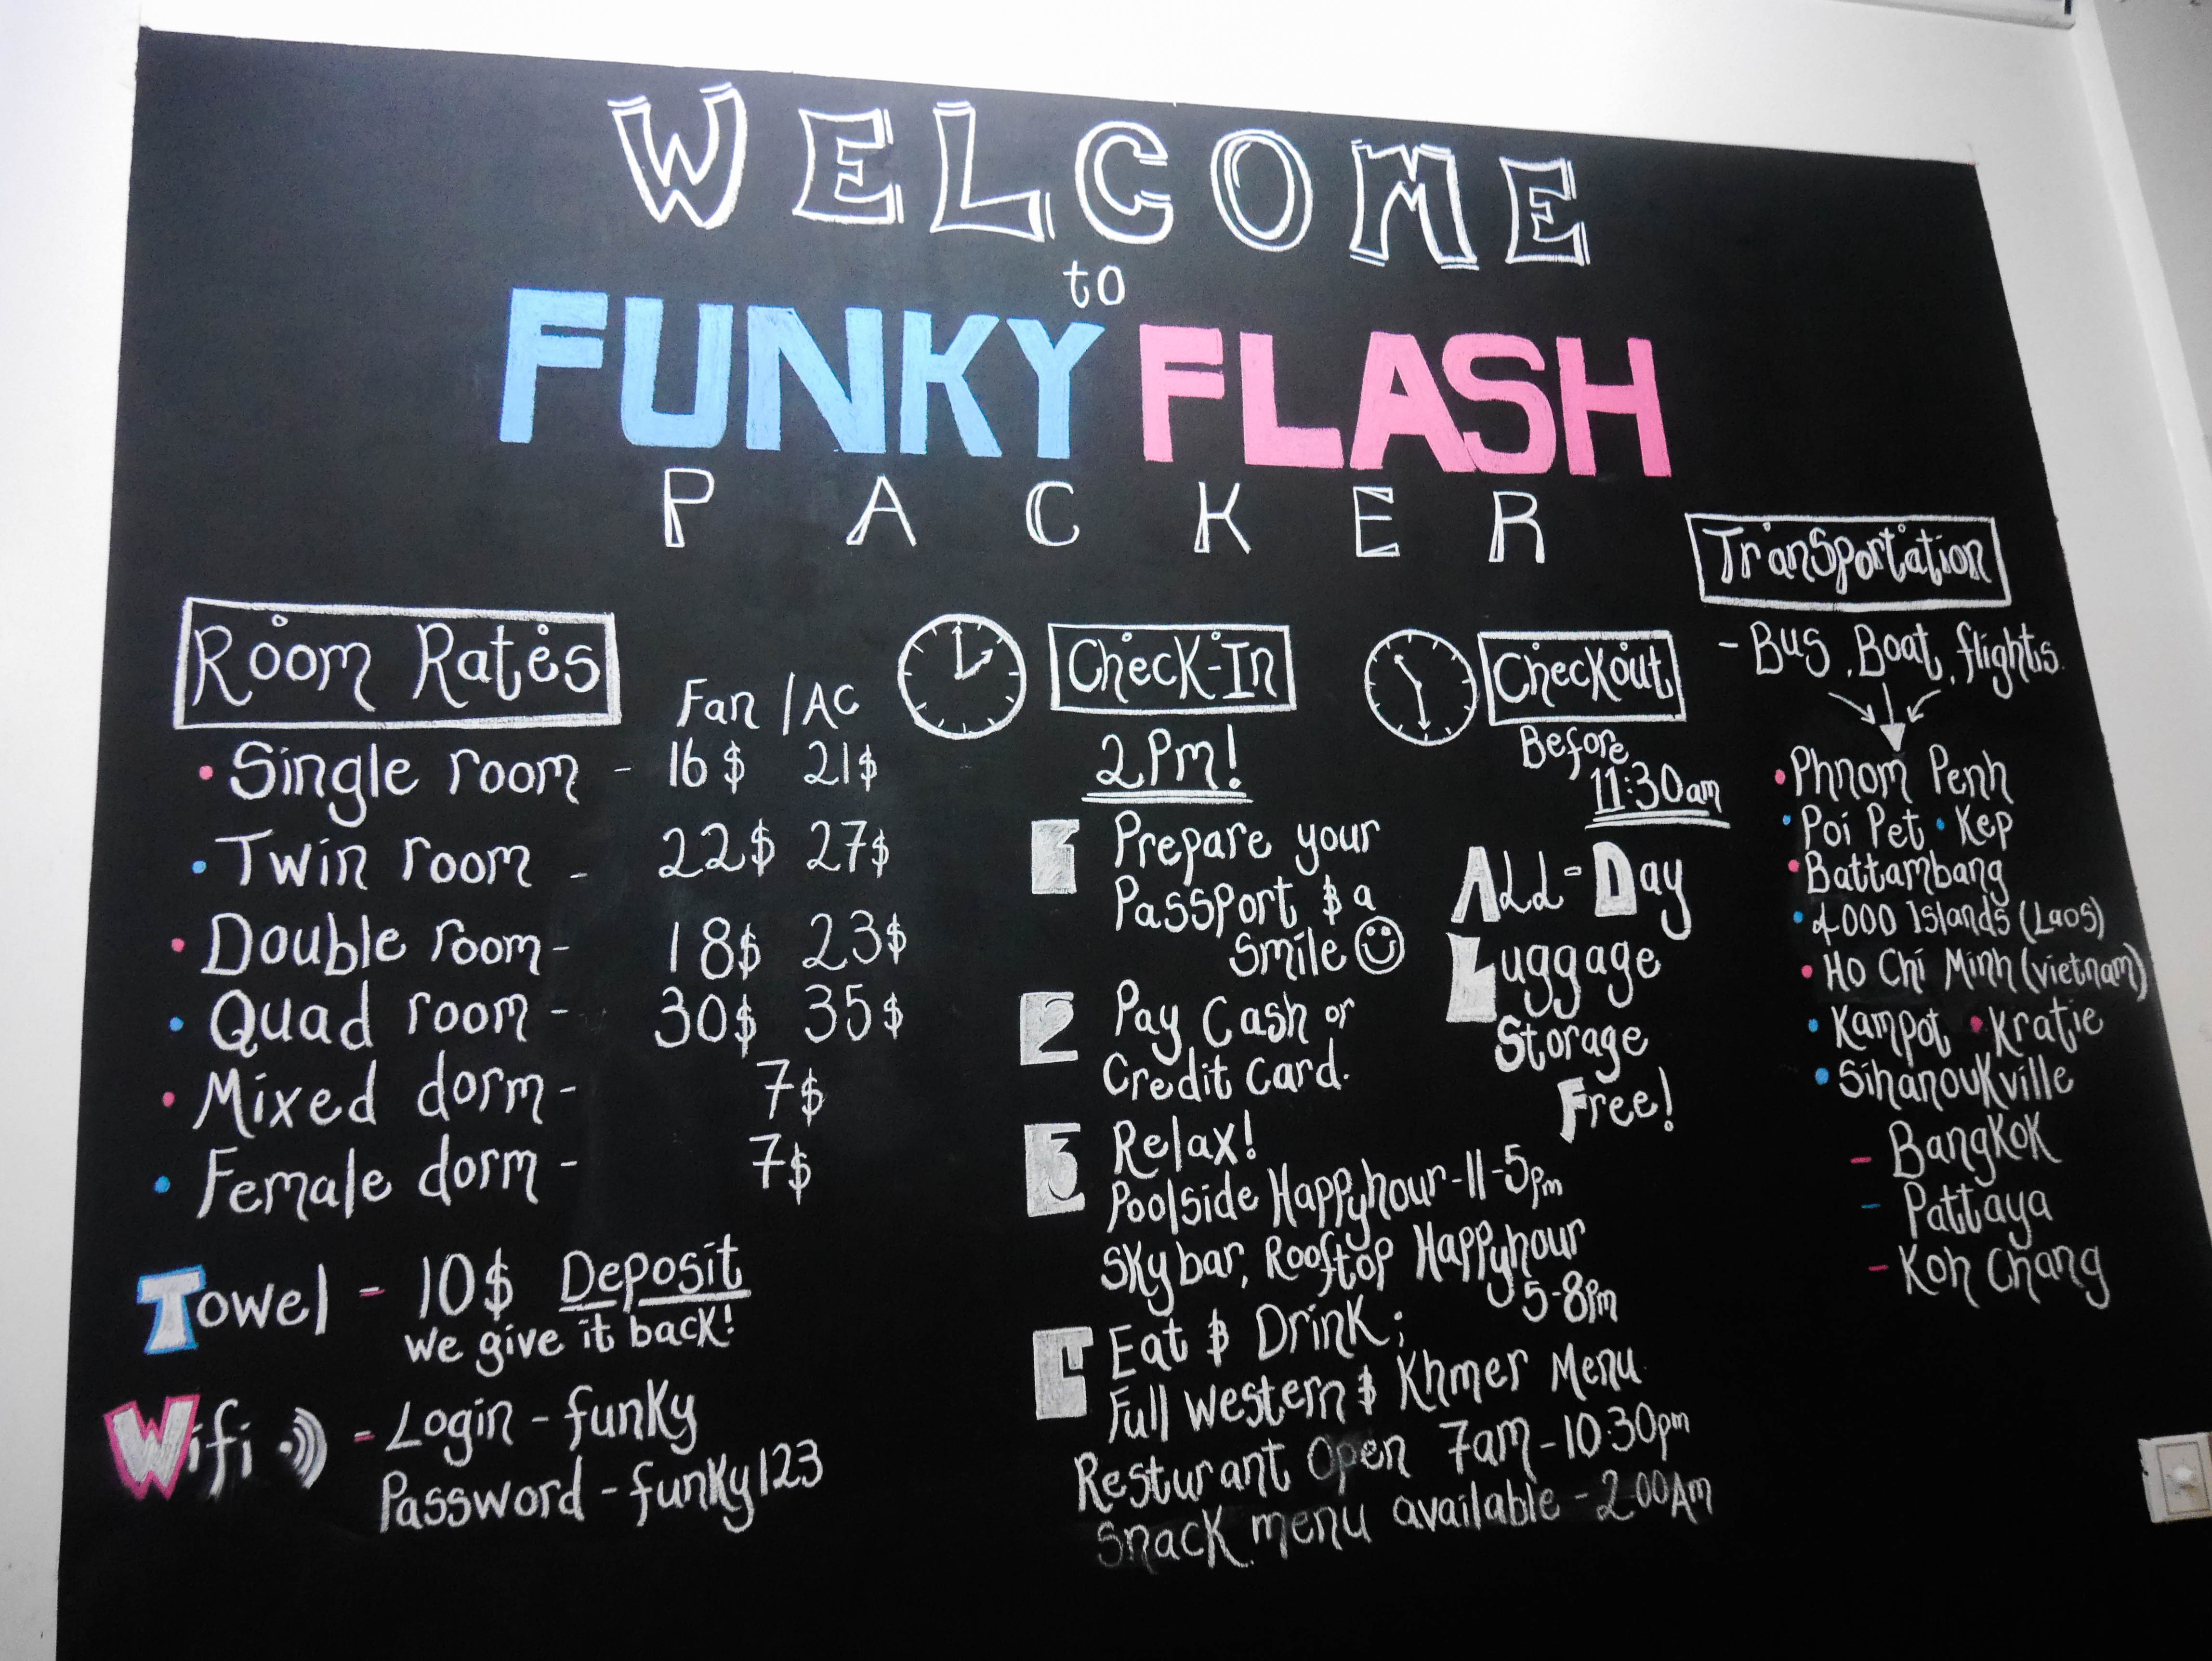 WELCOME
to
FUNKY FLASH
PACKER
Room Rates
Fan / AC
• Single room - 16$ 21$
• Twin room - 22$ 27$
• Double room - 18$ 23$
• Quad room - 30$ 35$
• Mixed dorm - 7$
• Female dorm - 7$
Towel - 10$ Deposit
we give it back!
Wifi - Login - funky
Password - funky123
Check-In
2Pm!
1 Prepare your
Passport $ a
Smile
2 Pay Cash or
Credit Card.
3 Relax!
Poolside Happyhour - 11-5pm
Sky bar, Rooftop Happyhour
5-8pm
4 Eat $ Drink;
Full western $ Khmer Menu
Resturant Open 7am - 10:30pm
Snack menu available - 2 00Am
Checkout
Before
11:30am
ALL-Day
Luggage
Storage
Free!
Transportation
- Bus, Boat, flights.
• Phnom Penh
• Poi Pet • Kep
• Battambang
• 4000 Islands (Laos)
• Ho Chi Minh (vietnam)
• Kampot • Kratie
• Sihanoukville
- Bangkok
- Pattaya
- Koh Chang